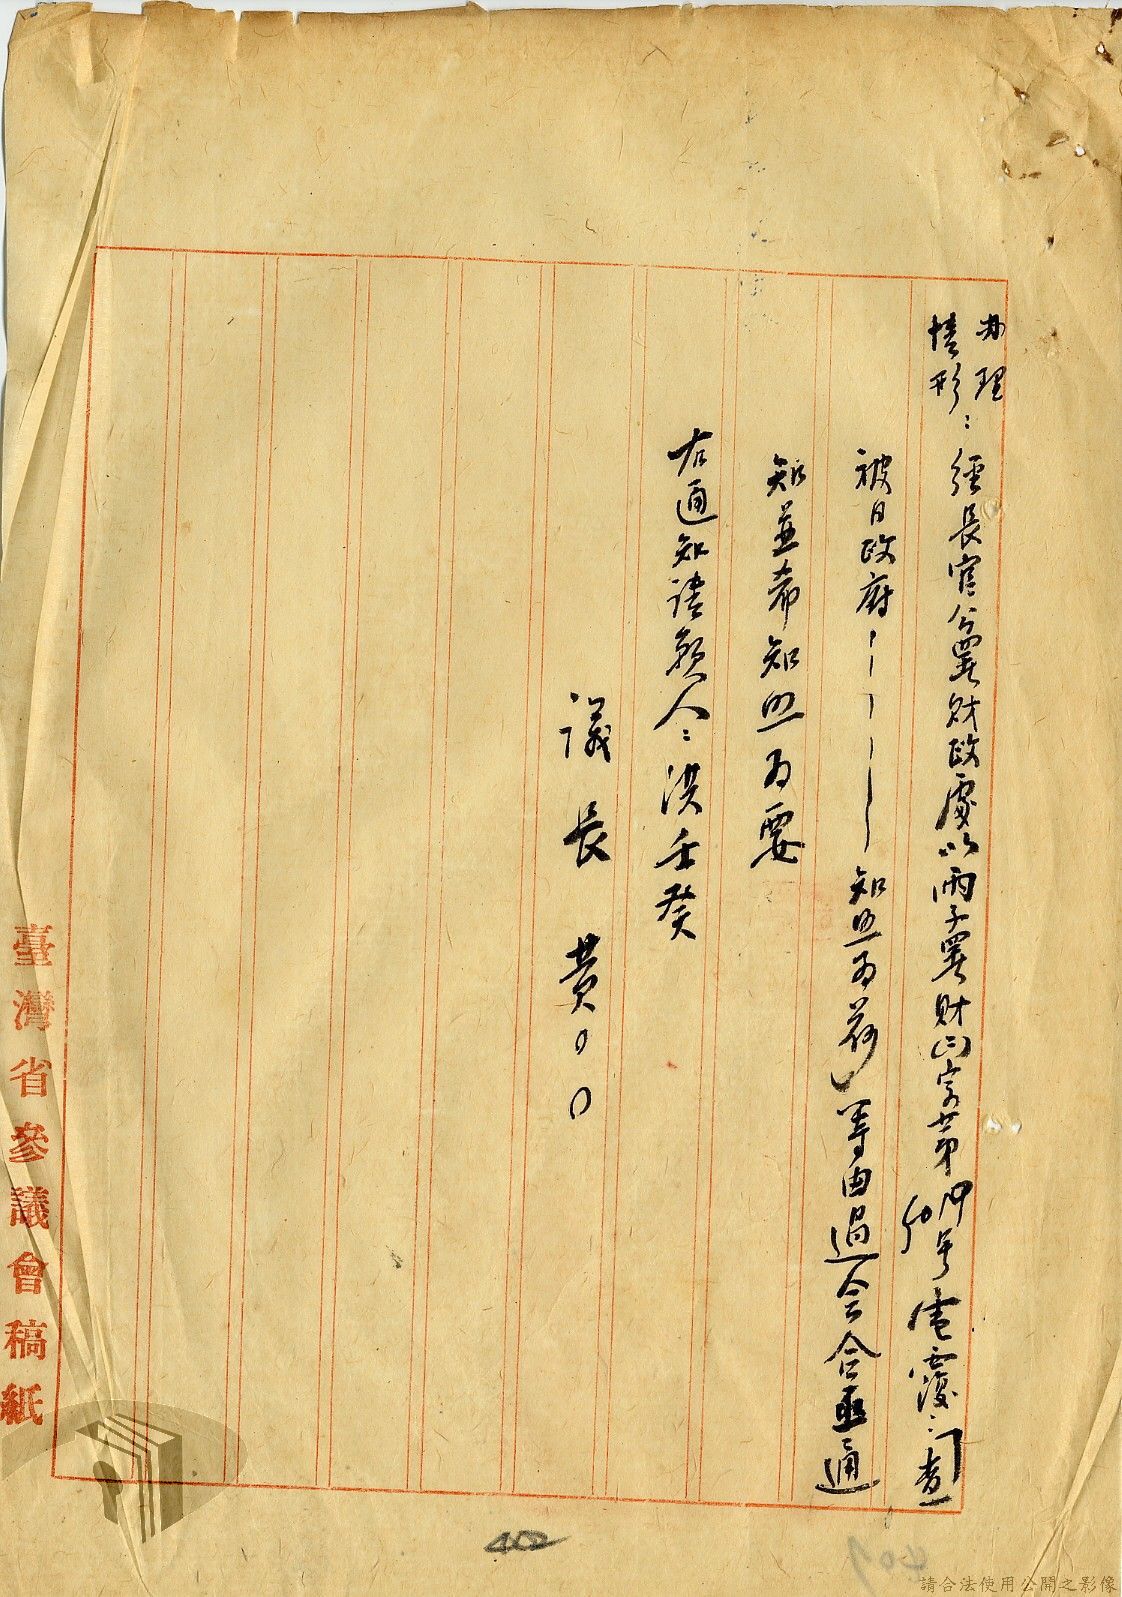 办理
情形：經長官公署財政處以丙子署財㈡字第號電覆：「查
被日政府－－－－－知照為荷」等由過会合亟通
知並希知照為要
右通知請願人：洪壬癸
議長 黃〇〇
臺灣省參議會稿紙
402
請合法使用公開之影像